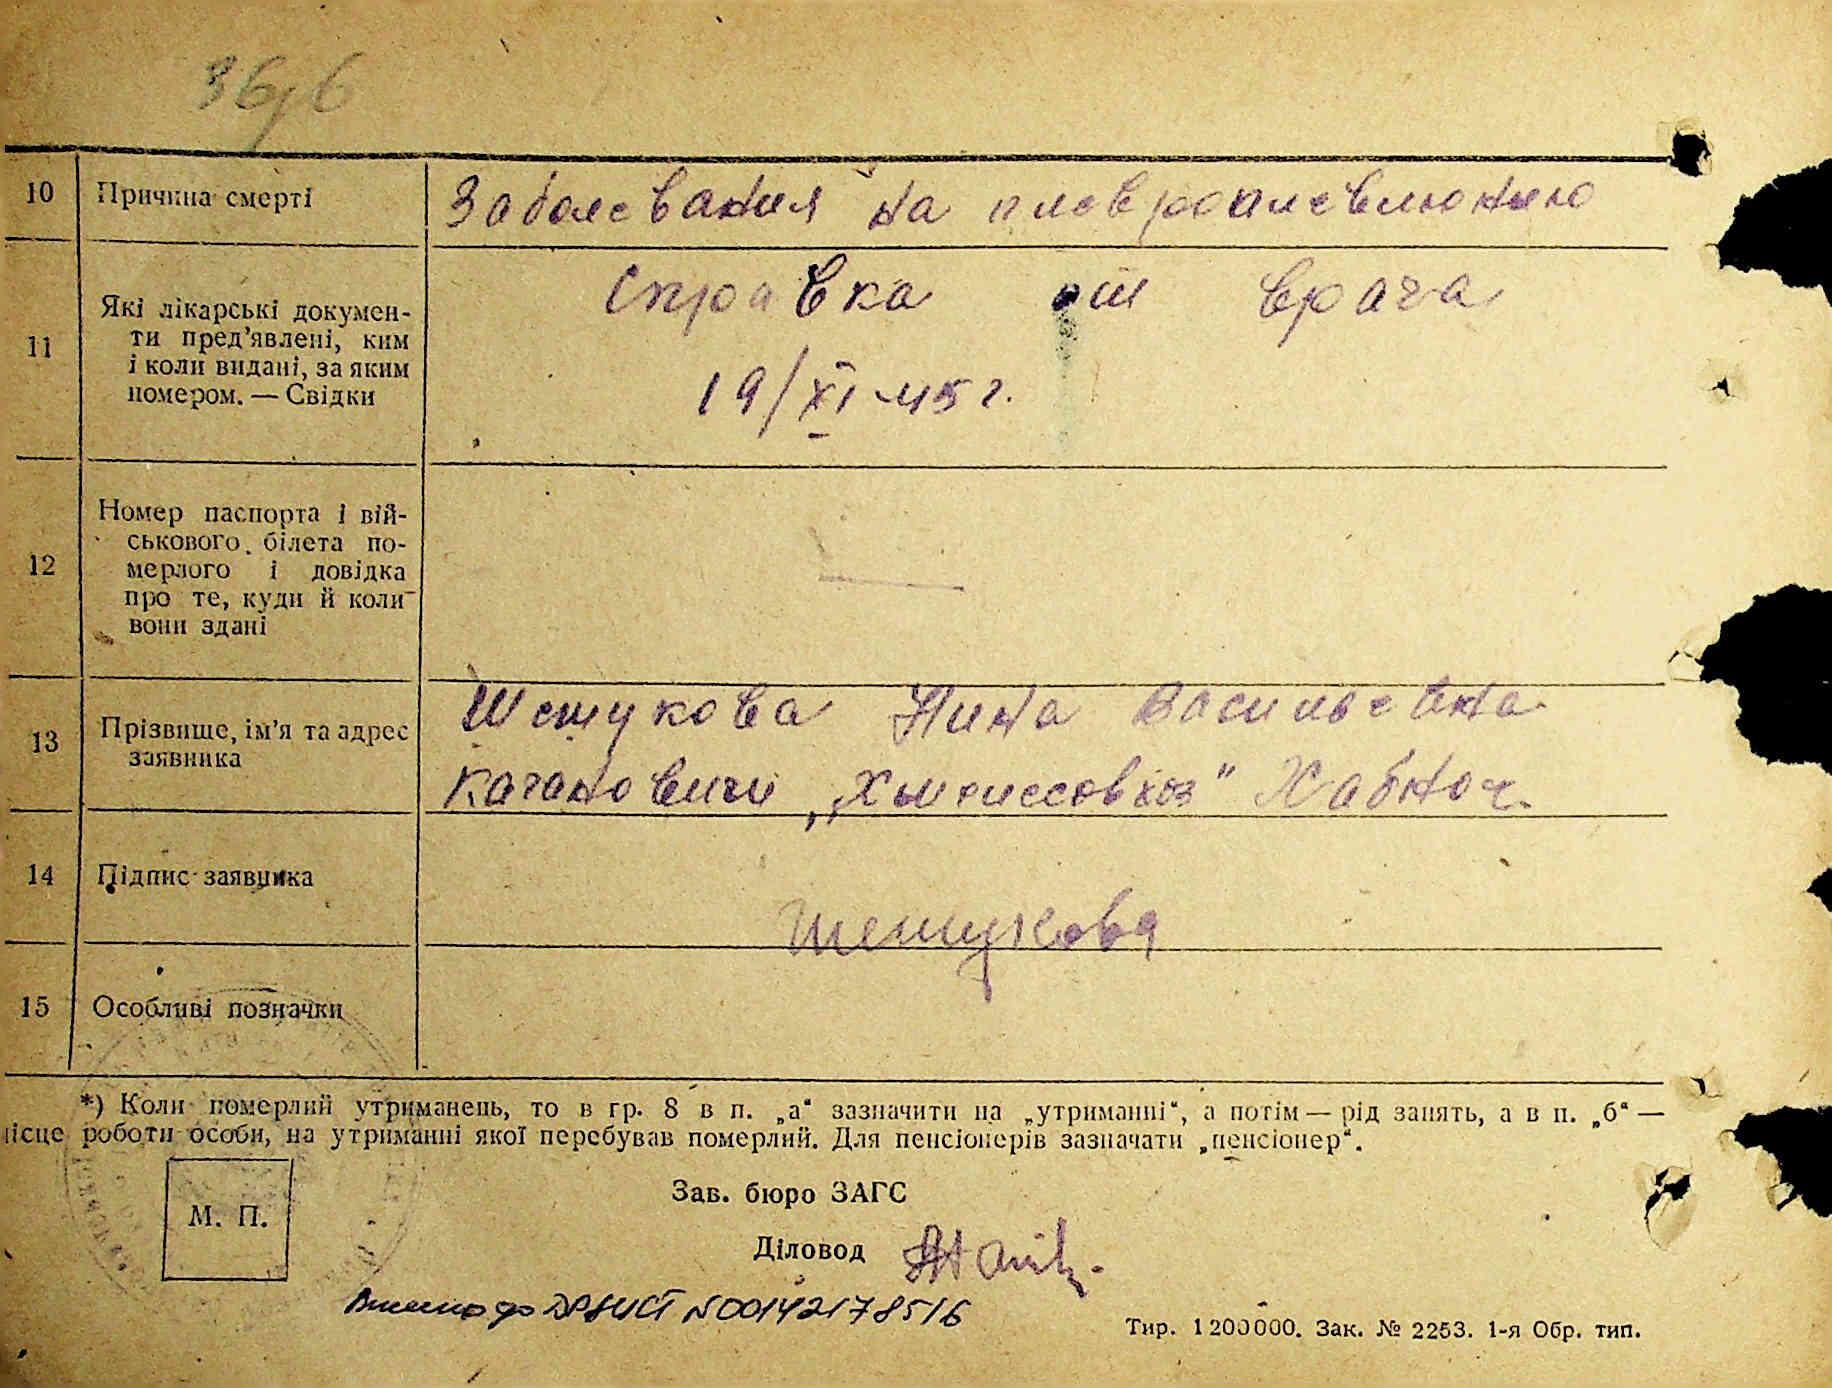 36/6
10 Причина смерті Заболевания на плевропневмонию
11 Які лікарські докумен-
ти пред’явлені, ким
і коли видані, за яким
номером. — Свідки
Справка от врача
19/XI-45 г.
12 Номер паспорта і вій-
ськового білета по-
мерлого і довідка
про те, куди й коли
вони здані
—
13 Прізвище, ім’я та адрес
заявника
Шетукова Нина Васильевна
Каганович Хабноч.
14 Підпис заявника
Шетукова
15 Особливі позначки
*) Коли померлий утриманець, то в гр. 8 в п. „а“ зазначити на „утриманні“, а потім — рід занять, а в п. „б“ —
місце роботи особи, на утриманні якої перебував померлий. Для пенсіонерів зазначати „пенсіонер“.
М. П.
Зав. бюро ЗАГС
Діловод
Внесено до ДРАЦСГ №00142178516
Тир. 1200000. Зак. № 2253. 1-я Обр. тип.